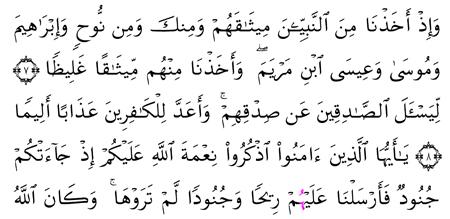 وَإِذْ أَخَذْنَا مِنَ ٱلنَّبِيِّـۧنَ مِيثَـٰقَهُمْ وَمِنكَ وَمِن نُّوحٍ وَإِبْرَٰهِيمَ
وَمُوسَىٰ وَعِيسَى ٱبْنِ مَرْيَمَ ۖ وَأَخَذْنَا مِنْهُم مِّيثَـٰقًا غَلِيظًا ﴿٧﴾
لِّيَسْـَٔلَ ٱلصَّـٰدِقِينَ عَن صِدْقِهِمْ ۚ وَأَعَدَّ لِلْكَـٰفِرِينَ عَذَابًا أَلِيمًا
﴿٨﴾ يَـٰٓأَيُّهَا ٱلَّذِينَ ءَامَنُوا۟ ٱذْكُرُوا۟ نِعْمَةَ ٱللَّهِ عَلَيْكُمْ إِذْ جَآءَتْكُمْ
جُنُودٌ فَأَرْسَلْنَا عَلَيْهِمْ رِيحًا وَجُنُودًا لَّمْ تَرَوْهَا ۚ وَكَانَ ٱللَّهُ